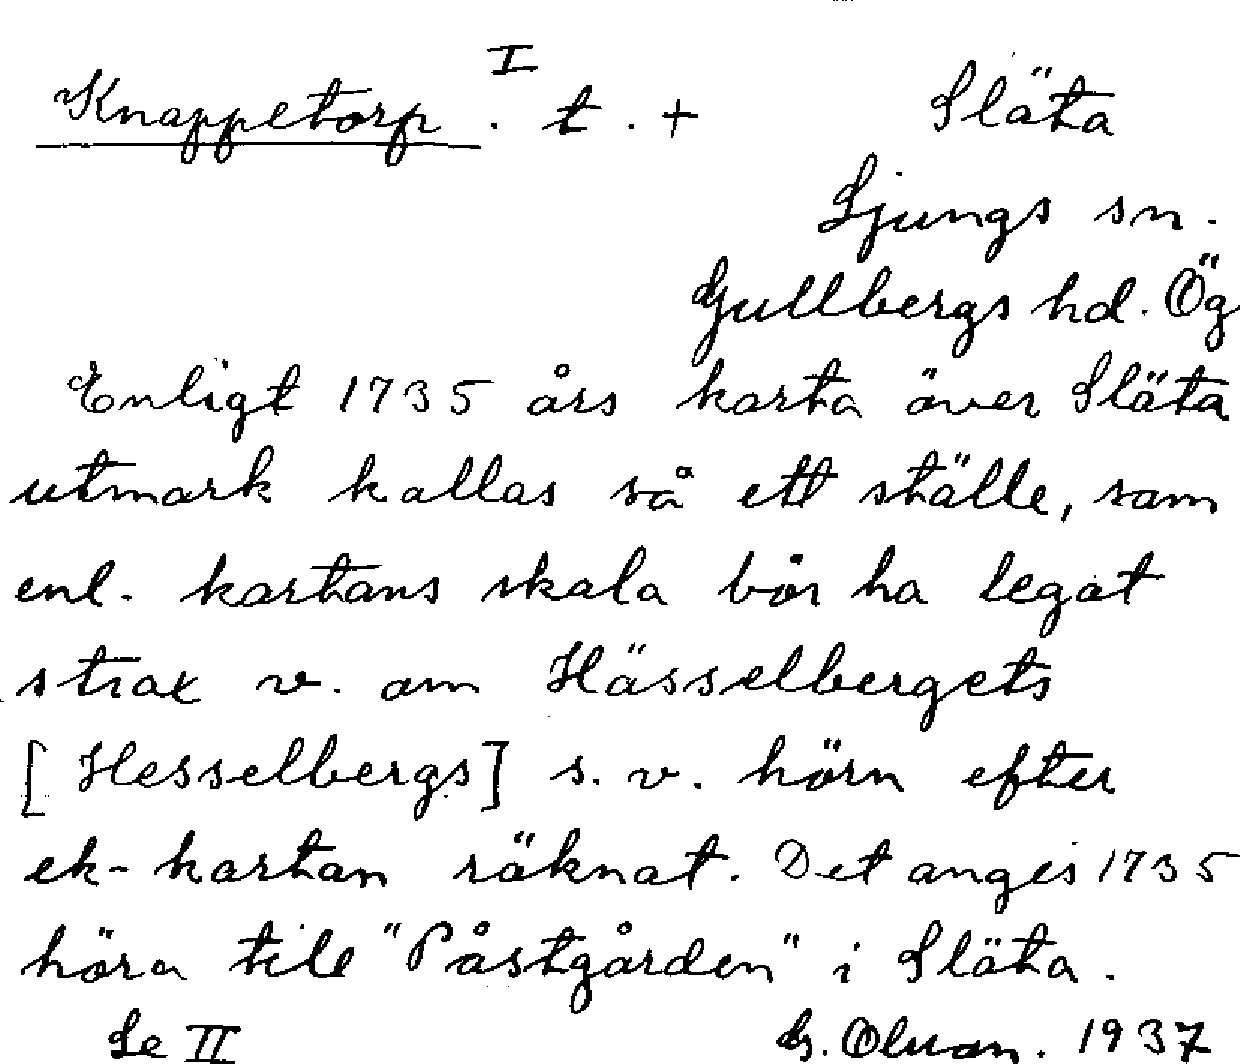 Knappetorp I. t. + Släta
Ljungs sn.
Gullbergs hd. Ög
Enligt 1735 års karta över Släta
utmark kallas så ett ställe, som
enl. kartans skala bör ha legat
strax v. om Hässelbergets
[Hesselbergs] s. v. hörn efter
ek-kartan räknat. Det anges 1735
höra till "Påstgården" i Släta.
Se II G. Olsson. 1937